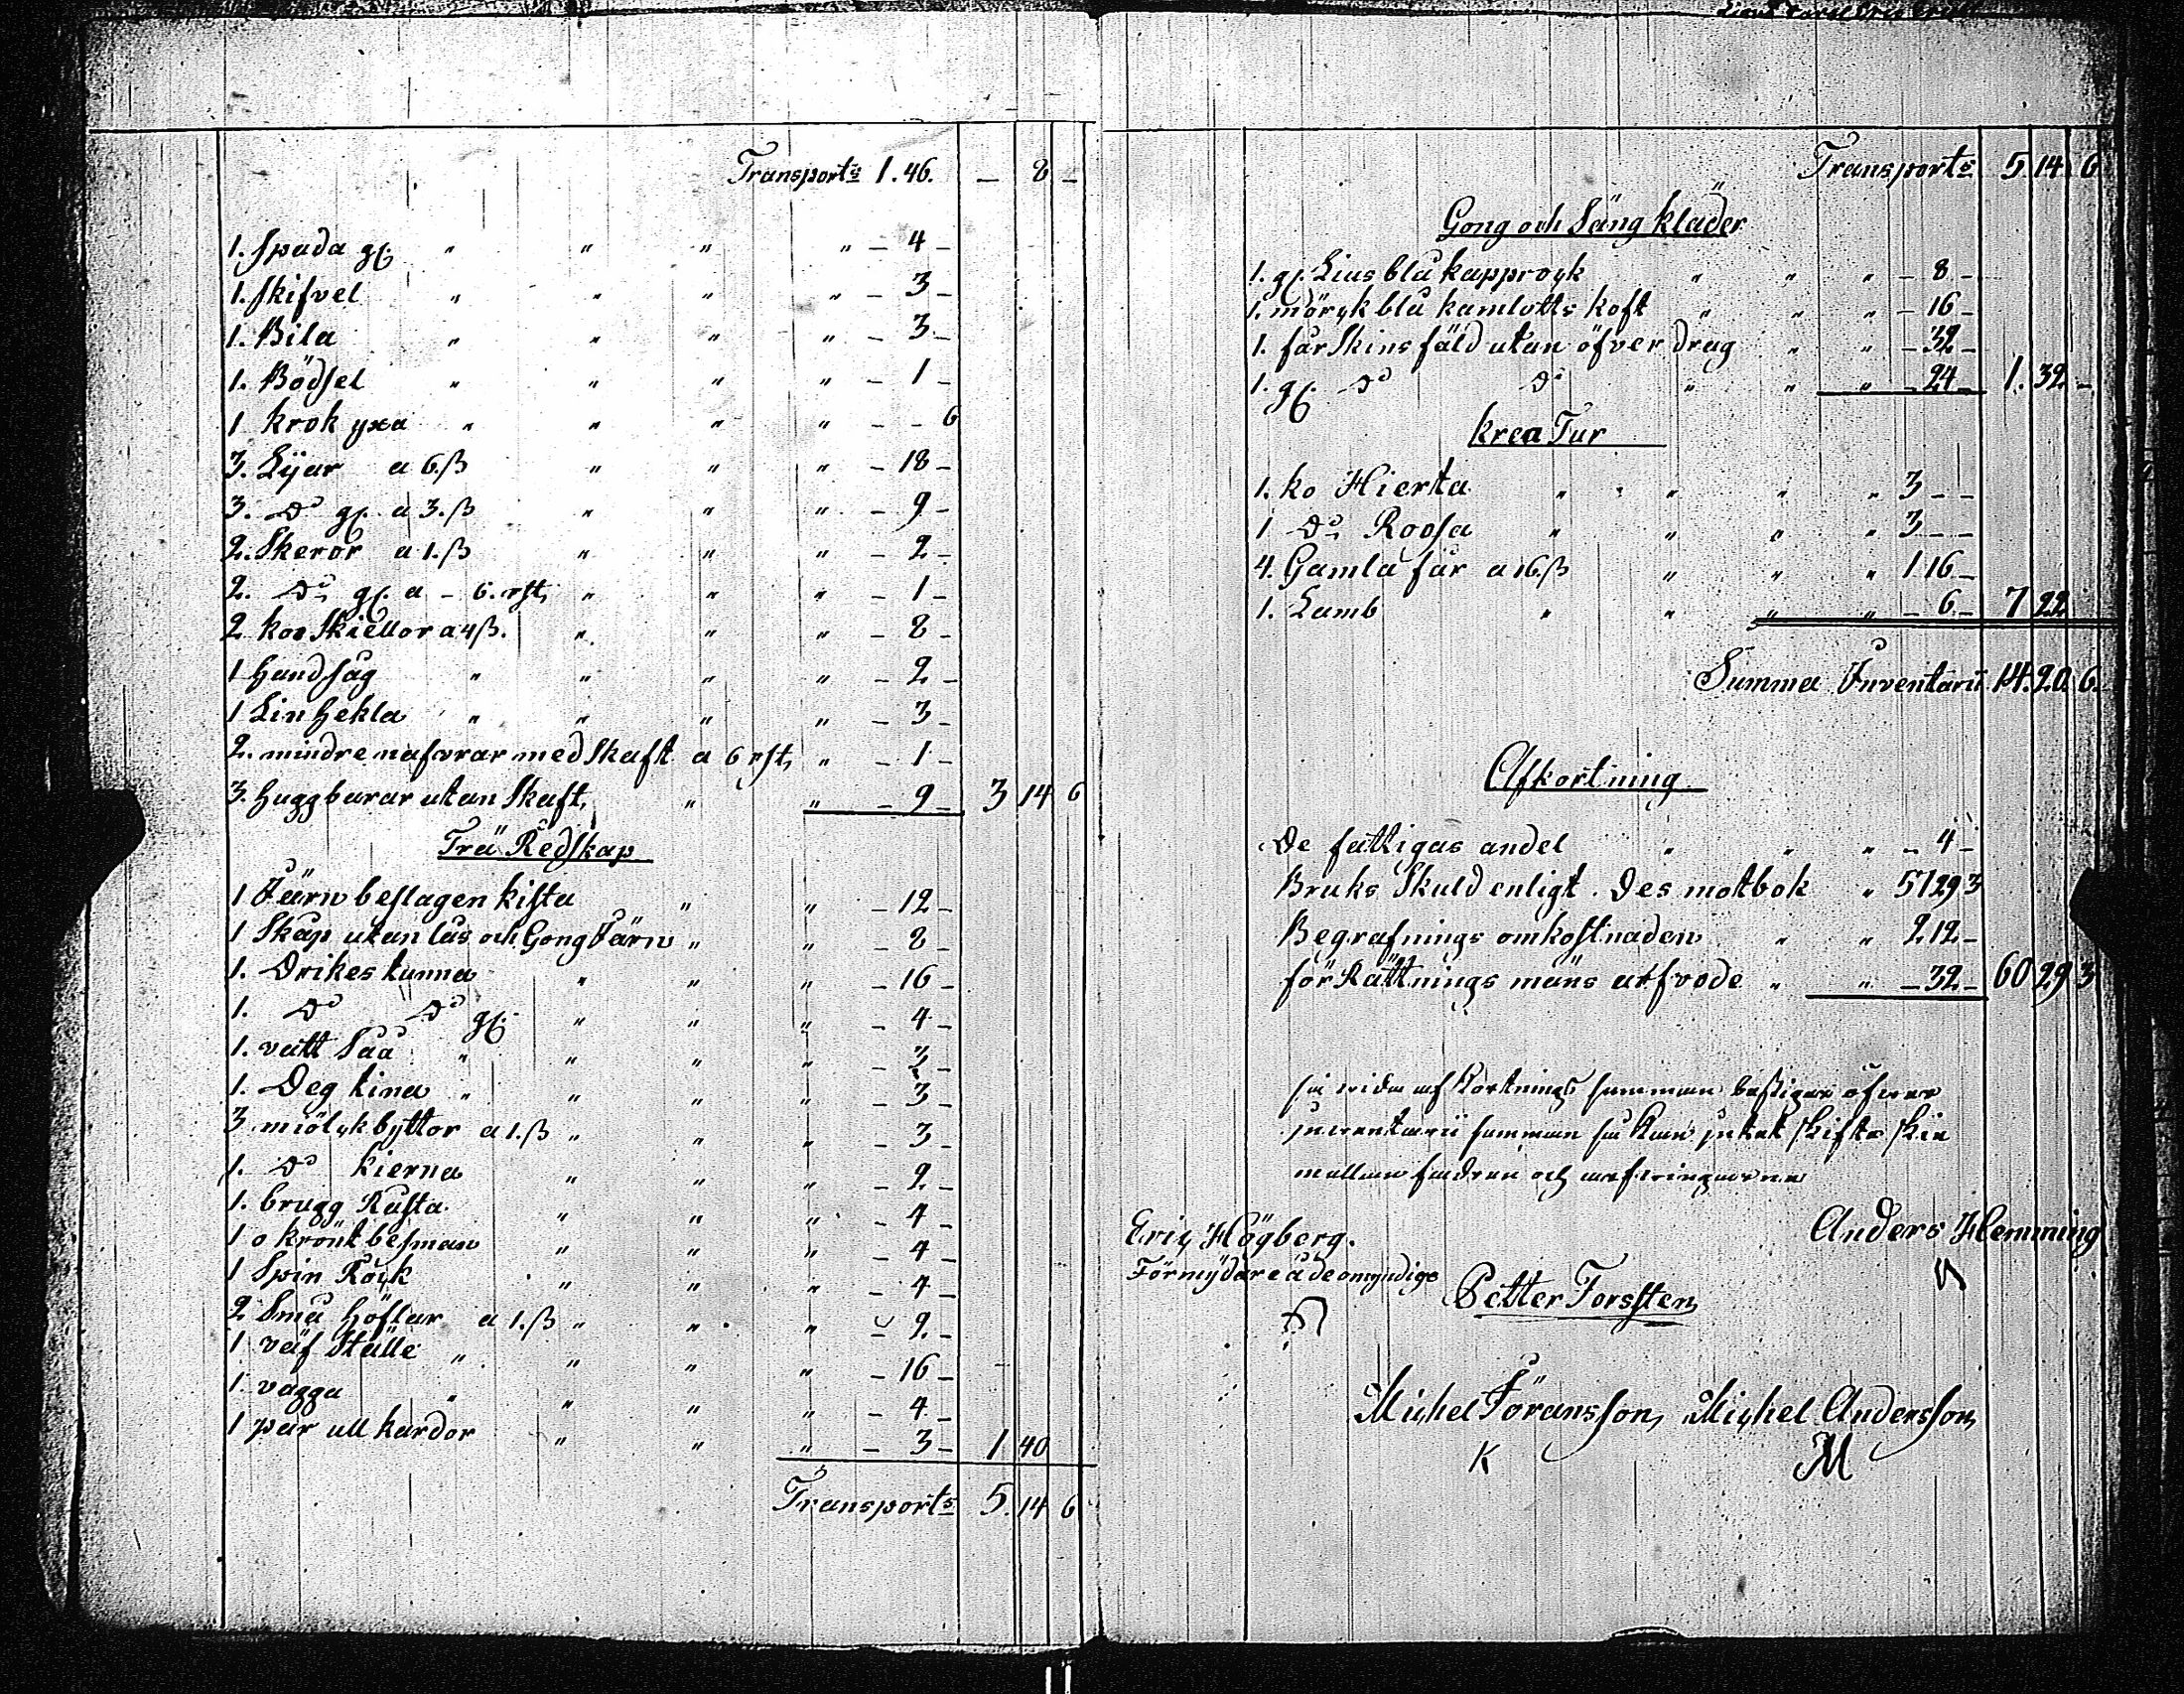 Transports 1.46. — 8 —
1. Spada gl. " " " " — 4 —
1. Skifvel " " " " — 3 —
1. Bila " " " " — 3 —
1. Bödsel " " " " — 1 —
1 krok yxa " " " " — — 6
3. Lÿar a 6.ß " " " — 18 —
3. Do gl. a 3.ß " " " — 9 —
2. Skeror a 1.ß " " " — 2 —
2. Do gl. a — 6. rst, " " " — 1 —
2 koo Skiellor a 4ß. " " " — 8 —
1 handsåg " " " " — 2 —
1 Lin hekla " " " " — 3 —
2. mindre nafvrar med Skaft a 6 rst, " — 1 —
3. huggbarar utan Skaft, " " — 9 — 3 14 6
Trä Redskap
1 Järn beslagen kista " " — 12 —
1 Skåp utan lås och Gong Järn " " — 8 —
1. Drikes tunna " " " — 16 —
1. Do Do gl. " " " — 4 —
1. vatt Såå " " " " — 3 —
1. Deg tina " " " " — 3 —
3 miölckbyttor a 1.ß " " " — 3 —
1. Do kierna " " " — 2 —
1. brugg Rusta " " " — 4 —
1 o krönt besman " " " — 4 —
1 Spin Rock " " " — 4 —
2 Små höflar a 1.ß " " " — 2 —
1 väf Stålle " " " " — 16 —
1. vagga " " " " — 4 —
1 par ull kardor " " " — 3 — 1 40
Transports 5. 14 6
Transports 5 14 6
Gong och Säng kläder
1. gl. Lius blå kapprock " " " — 8 —
1. mörck blå kamlotts koft " " " — 16 —
1. får Skins fäld utan öfver drag " " — 32 —
1. gl. Do Do " " " — 24 — 1. 32 —
krea Tur
1. ko Hierta " " " " 3 — —
1 Do Roosa " " " " 3 — —
4. Gamla får a 16.ß " " " 1 16 —
1. Lamb " " " " — 6 — 7 22
Summa Inventarii 14. 20. 6.
Afkortning
De fattigas andel " " " — 4 —
Bruks Skuld enligt. Des motbok " 57 29 3
Begrafnings omkostnaden " " 2 12 —
för Rättnings mäns arfvode " " — 32 — 60 29 3
så vida afkortnings summan bestiger öfver
Inventarii summan så kan intet skifte skie
mellan fadren och arfvingarne
Eric Högberg. Anders Hemming
Förmÿdare å de omyndige
Petter Forssten
Michel Jöransson, Michel Andersson,
K M